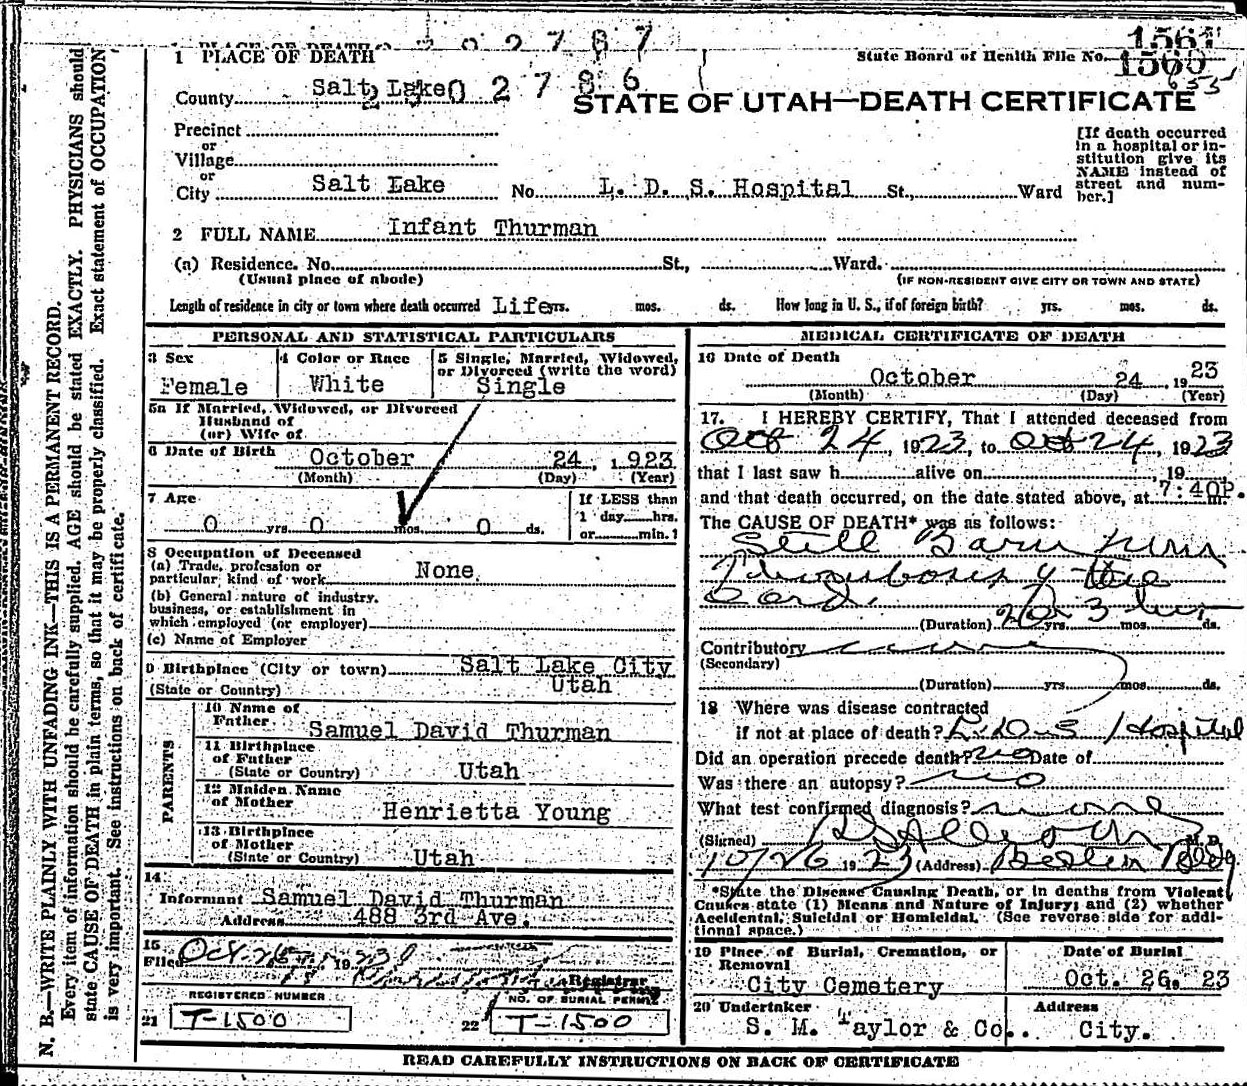 2 3 0 2 7 8 7
1 PLACE OF DEATH
State Board of Health File No. 1561
1560
653
County Salt Lake
2 3 0 2 7 8 6
STATE OF UTAH—DEATH CERTIFICATE
Precinct
or
Village
or
City Salt Lake No. L. D. S. Hospital St., Ward
[If death occurred
in a hospital or in-
stitution give its
NAME instead of
street and num-
ber.]
2 FULL NAME Infant Thurman
(a) Residence. No. St., Ward.
(Usual place of abode) (IF NON-RESIDENT GIVE CITY OR TOWN AND STATE)
Length of residence in city or town where death occurred Life yrs. mos. ds. How long in U. S., if of foreign birth? yrs. mos. ds.
PERSONAL AND STATISTICAL PARTICULARS
3 Sex
Female
4 Color or Race
White
5 Single, Married, Widowed,
or Divorced (write the word)
Single
5a If Married, Widowed, or Divorced
Husband of
(or) Wife of
6 Date of Birth October 24, 1923
(Month) (Day) (Year)
7 Age
0 yrs. 0 mos. 0 ds.
If LESS than
1 day hrs.
or min.?
8 Occupation of Deceased
(a) Trade, profession or
particular kind of work None.
(b) General nature of industry,
business, or establishment in
which employed (or employer)
(c) Name of Employer
9 Birthplace (City or town) Salt Lake City
(State or Country) Utah
PARENTS
10 Name of
Father Samuel David Thurman
11 Birthplace
of Father
(State or Country) Utah
12 Maiden Name
of Mother Henrietta Young
13 Birthplace
of Mother
(State or Country) Utah
14
Informant Samuel David Thurman
Address 488 3rd Ave.
15
Filed Oct. 26, 1923
Registrar
REGISTERED NUMBER
21 T-1500
NO. OF BURIAL PERMIT
22 T-1500
MEDICAL CERTIFICATE OF DEATH
16 Date of Death
October 24, 1923
(Month) (Day) (Year)
17. I HEREBY CERTIFY, That I attended deceased from
Oct 24, 1923, to Oct 24, 1923
that I last saw h alive on , 19
and that death occurred, on the date stated above, at 7:40P. m.
The CAUSE OF DEATH* was as follows:
Still Born from
Thrombosis of the
Cord.
(Duration) 2 or 3 hrs yrs. mos. ds.
Contributory
(Secondary)
(Duration) yrs. mos. ds.
18 Where was disease contracted
if not at place of death? L. D. S Hospital
Did an operation precede death? no Date of
Was there an autopsy? no
What test confirmed diagnosis? none
(Signed) M. D.
10/26 1923 (Address) Boston Bldg
*State the Disease Causing Death, or in deaths from Violent
Causes state (1) Means and Nature of Injury; and (2) whether
Accidental, Suicidal or Homicidal. (See reverse side for addi-
tional space.)
19 Place of Burial, Cremation, or
Removal
City Cemetery
Date of Burial
Oct. 26. 23
20 Undertaker
S. M. Taylor & Co..
Address
City.
READ CAREFULLY INSTRUCTIONS ON BACK OF CERTIFICATE
N. B.—WRITE PLAINLY WITH UNFADING INK—THIS IS A PERMANENT RECORD.
Every item of information should be carefully supplied. AGE should be stated EXACTLY. PHYSICIANS should
state CAUSE OF DEATH in plain terms, so that it may be properly classified. Exact statement of OCCUPATION
is very important. See instructions on back of certificate.